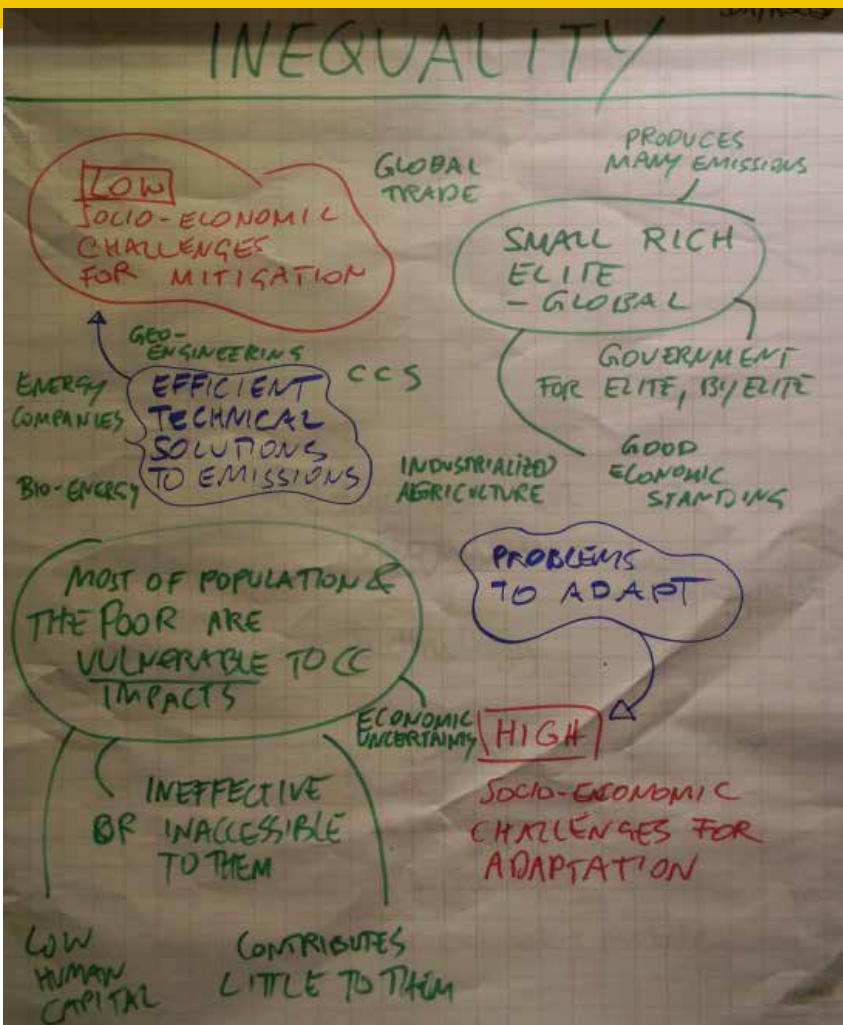 INEQUALITY
LOW
SOCIO-ECONOMIC
CHALLENGES
FOR MITIGATION
GLOBAL
TRADE
PRODUCES
MANY EMISSIONS
SMALL RICH
ELITE
- GLOBAL
GOVERNMENT
FOR ELITE, BY ELITE
GOOD
ECONOMIC
STANDING
GEO-
ENGINEERING
CCS
ENERGY
COMPANIES
EFFICIENT
TECHNICAL
SOLUTIONS
TO EMISSIONS
BIO-ENERGY
INDUSTRIALIZED
AGRICULTURE
MOST OF POPULATION &
THE POOR ARE
VULNERABLE TO CC
IMPACTS
PROBLEMS
TO ADAPT
ECONOMIC
HIGH
SOCIO-ECONOMIC
CHALLENGES FOR
ADAPTATION
INEFFECTIVE
OR INACCESSIBLE
TO THEM
LOW
HUMAN
CAPITAL
CONTRIBUTES
LITTLE TO THEM